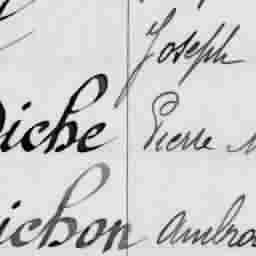 Joseph
iche Pierre
ichon Ambro